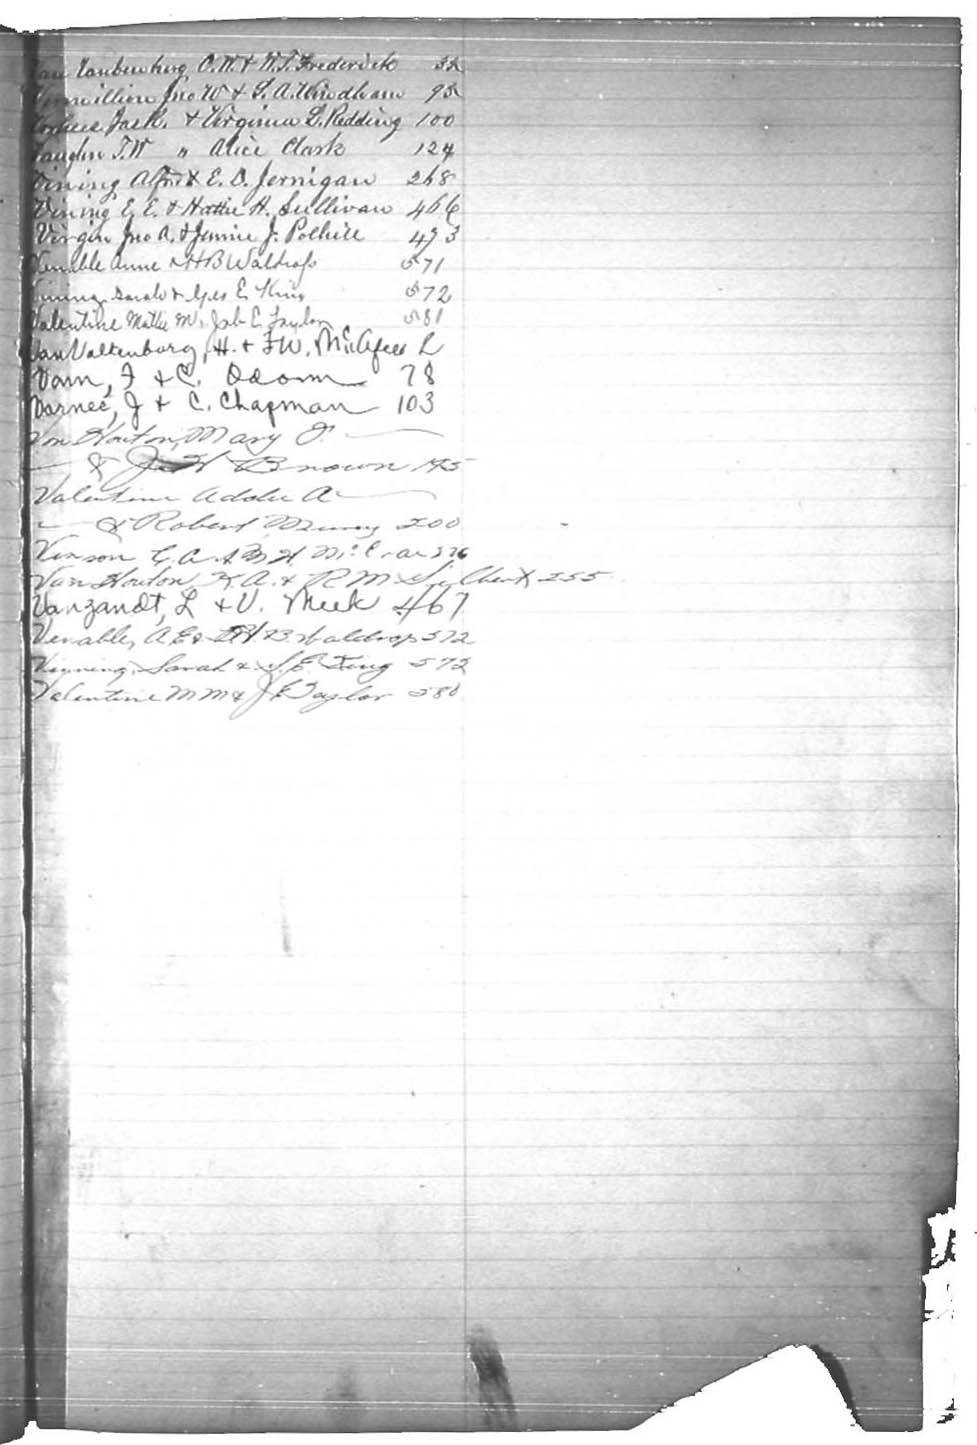 O. W. & W. T. Frederick 32
Jno W & S. A. Windham 95
Jack. & Virginia L. Redding 100
Vaughn T. W " Alice Clark 124
Vining Alfred & E. O. Jernigan 268
Vining E. E. & Hattie H. Sullivan 466
Virgin Jno A. & Jennie J. Polhill 473
Venable Anne & H B Waldrop 571
Vining Sarah & Geo E. King 572
Valentine Mattie M. Job E Taylor 581
Van Valkenburg, H. & F W. McAfee 2
Vann, J & C. Odom 78
Varner, J & C. Chapman 103
Van Houton, Mary J.
— & J H Brown 145
Valentine Addie A
— & Robert Murray 200
Vinson G. A & M H 226
Van Houton, K. A. & R M 255
Vanzandt, L & V. Meek 467
Venable, A E & H B Waldrop 572
Vinning, Sarah & G. E King 572
Valentine M M & J E Taylor 580